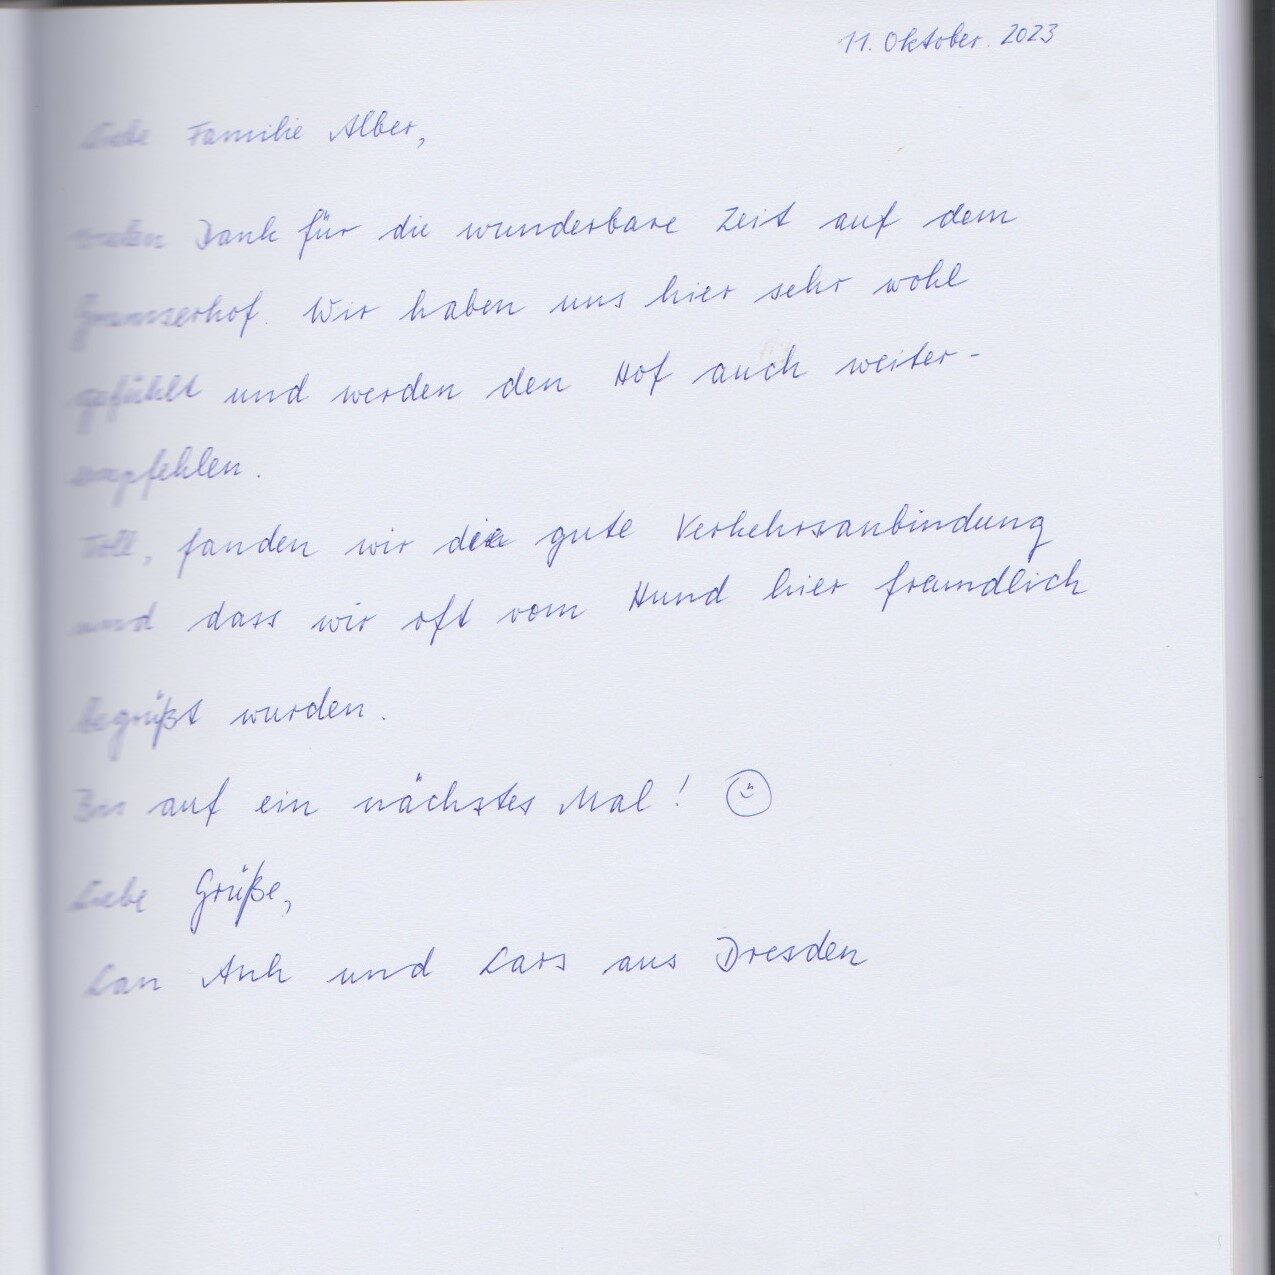 11. Oktober. 2023
Liebe Familie Alber,
vielen Dank für die wunderbare Zeit auf dem
Wir haben uns hier sehr wohl
gefühlt und werden den Hof auch weiter-
empfehlen.
Toll, fanden wir die gute Verkehrsanbindung
und dass wir oft vom Hund hier freundlich
begrüßt wurden.
Bis auf ein nächstes Mal!
Liebe Grüße,
Lan Anh und Lars aus Dresden